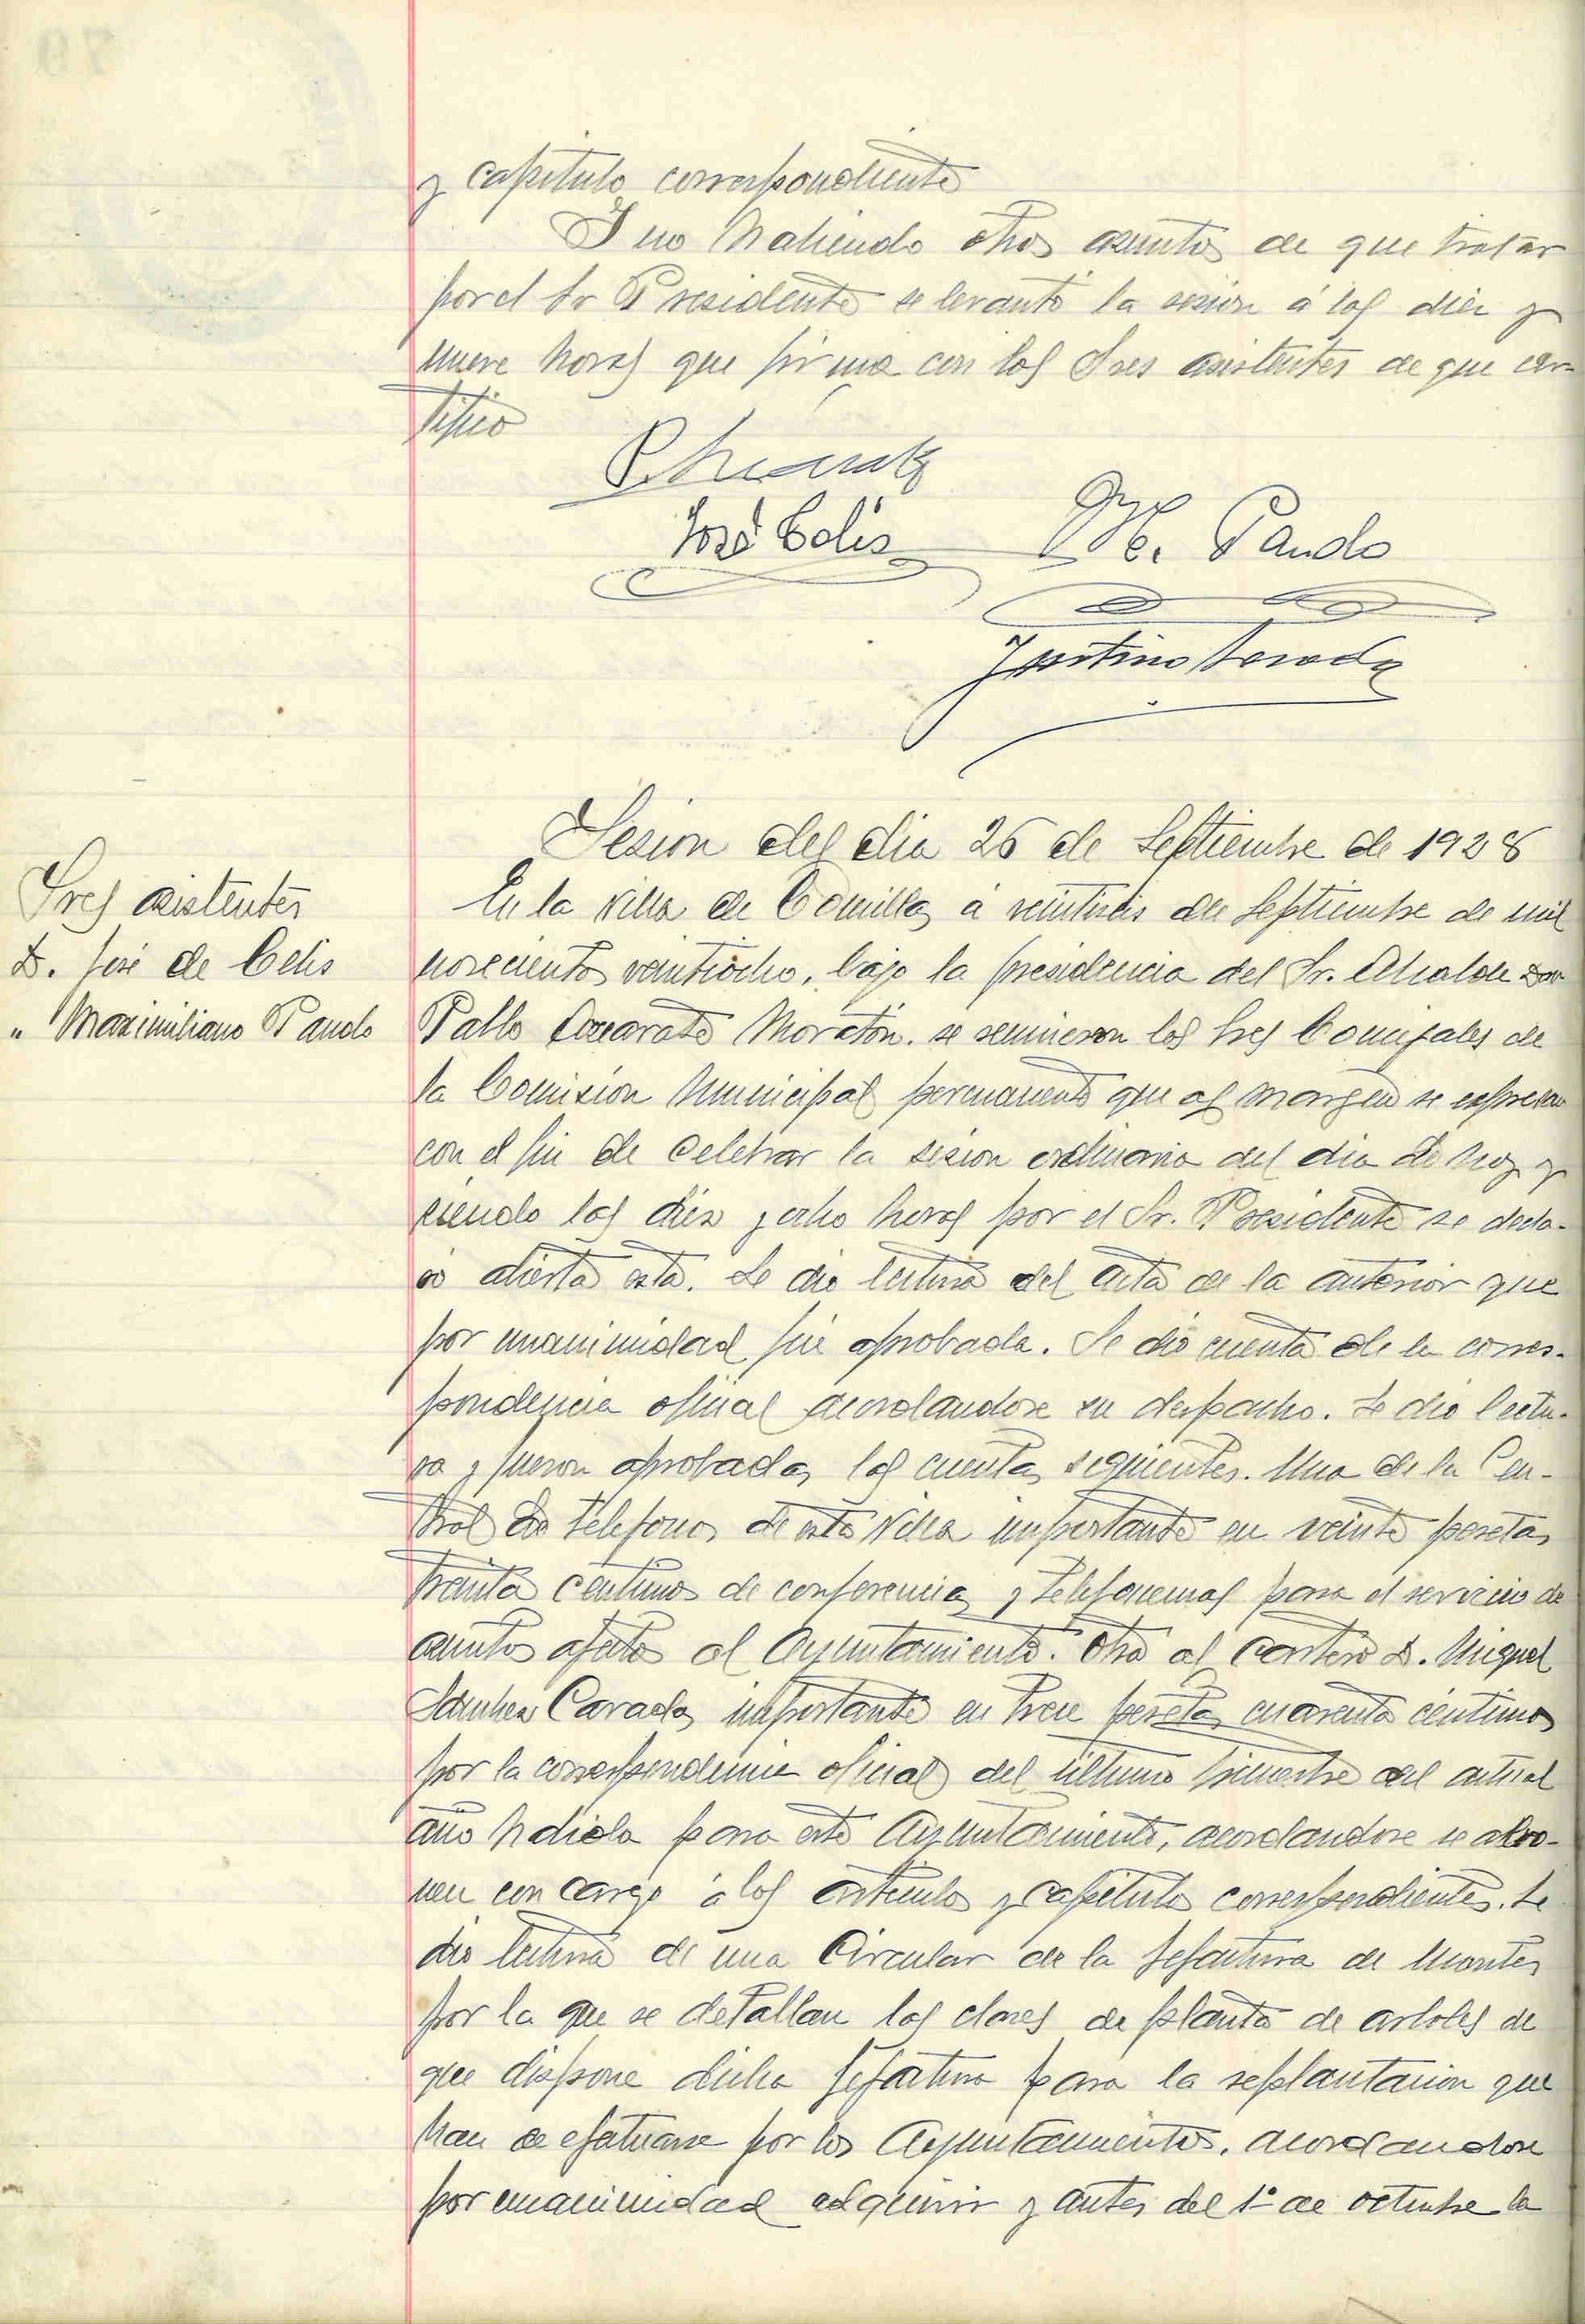 y capitulo correspondiente
Y no habiendo otros asuntos de que tratar
por el Sr Presidente se levantó la sesion á las diez y
nueve horas que firma con los Sres asistentes de que cer-
tifico
José Celis
M. Pando
Justino
Sesion del dia 26 de Septiembre de 1928
Sres asistentes
D. José de Celis
" Maximiliano Pando
En la villa de Comillas á veintiseis de Septiembre de mil
novecientos veintiocho, bajo la presidencia del Sr. Alcalde Don
Pablo Azcarate Moratón. se reunieron los Sres Concejales de
la Comision Municipal permanente que al margen se expresan
con el fin de celebrar la sesion ordinaria del dia de hoy y
siendo las diez y ocho horas por el Sr. Presidente se decla-
ró abierta esta. Se dio lectura del acta de la anterior que
por unanimidad fué aprobada. Se dió cuenta de la corres-
pondencia oficial acordandose su despacho. Se dio lectu-
ra y fueron aprobadas las cuentas siguientes. Una de la Cen-
tral de telefonos de esta Villa importante en veinte pesetas
treinta centimos de conferencias y telefonemas para el servicio de
asuntos afectos al Ayuntamiento. Otra al cartero D. Miguel
Sanchez importante en trece pesetas cuarenta centimos
por la correspondencia oficial del ultimo trimestre del actual
año habida para este Ayuntamiento, acordandose se abo-
nen con cargo á los articulos y capitulos correspondientes. Se
dio lectura de una Circular de la Jefatura de Montes
por la que se detallan las clases de planta de arboles de
que dispone dicha Jefatura para la replantacion que
han de efectuarse por los Ayuntamientos, acordandose
por unanimidad adquirir y antes del 1º de octubre la